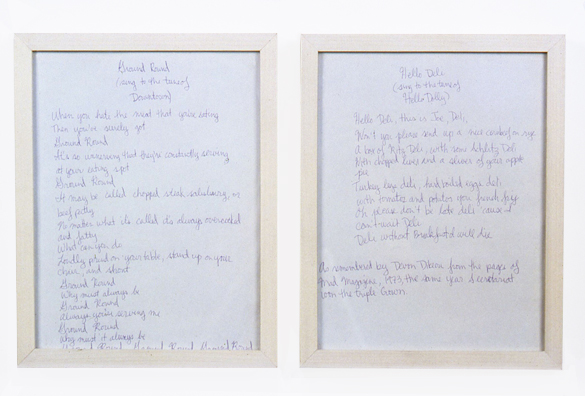 Ground Round
(sung to the tune of
Downtown)
When you hate the meat that you're eating
Then you've surely got
Ground Round
It's so unnerving that they're constantly serving
at your eating spot
Ground Round
It may be called chopped steak salisbury, or
beef patty
No matter what it's called it's always overcooked
and fatty
What can you do
Loudly pound on your table, stand up on your
chair, and shout
Ground Round
Why must always be
Ground Round
always you're serving me
Ground Round
why must it always be
Ground Round Ground Round Ground Round
Hello Deli
(sung to the tune of
Hello Dolly)
Hello Deli, this is Joe, Deli,
Won't you please send up a nut on rye
A box of Ritz, Deli, with some Deli
With chopped liver and a slice of your apple
pie
Turkey legs deli, hard boiled eggs deli
with tomatoes and potatoes you french fry
Oh please don't be late deli 'cause I
can't wait Deli
Deli without breakfast I'll die
As remembered by from the pages of
Mad Magazine, 1973, the same year Secretariat
won the Triple Crown.